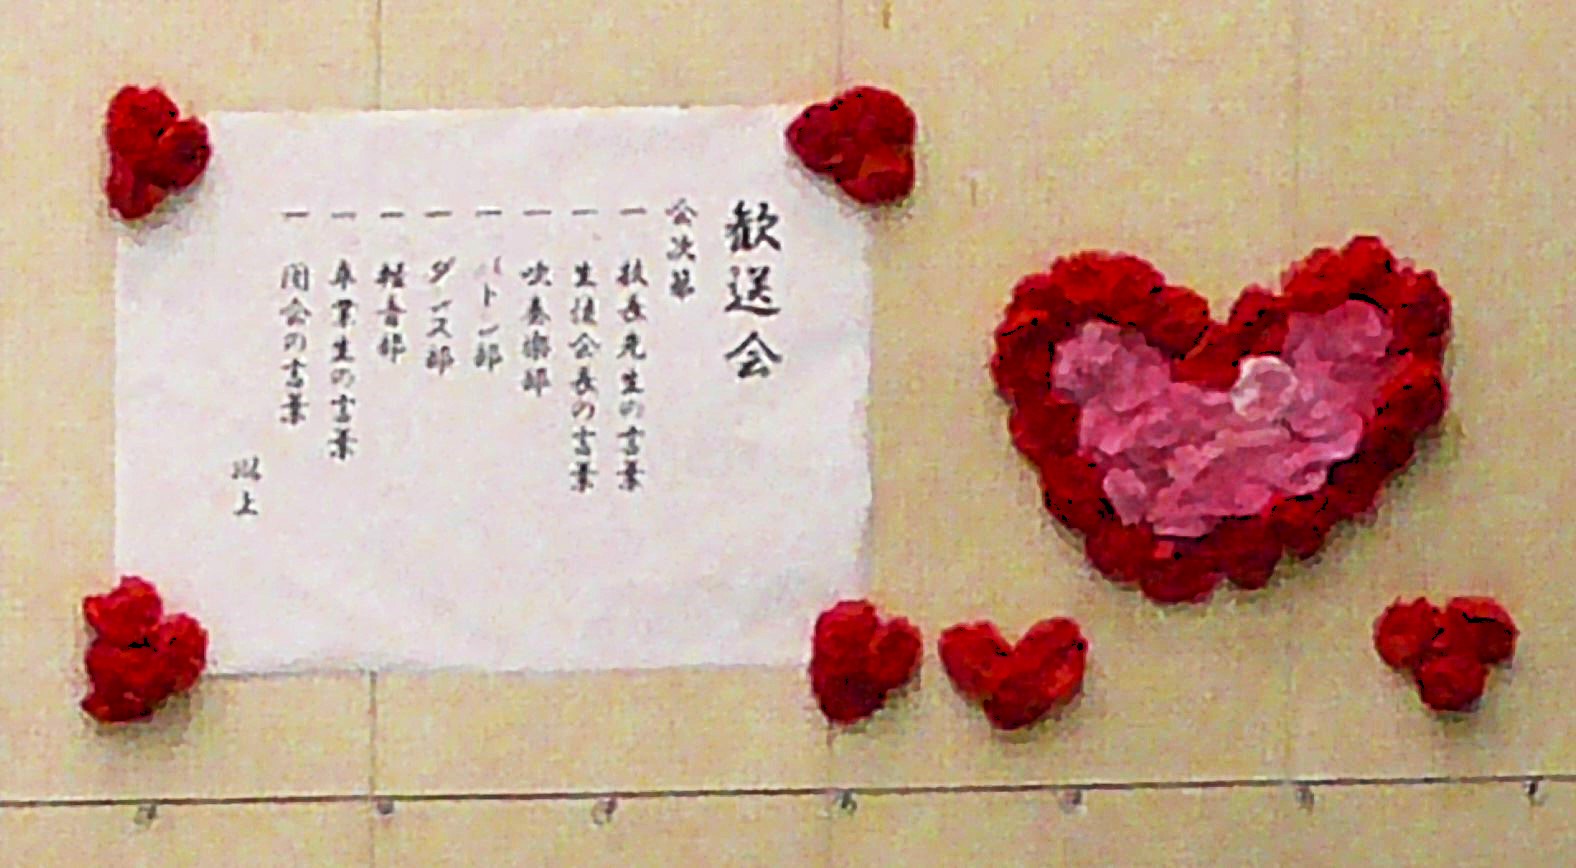 歓送会
会次第
一 校長先生の言葉
一 生徒会長の言葉
一 吹奏楽部
一 バトン部
一 ダンス部
一 軽音部
一 卒業生の言葉
一 閉会の言葉
以上